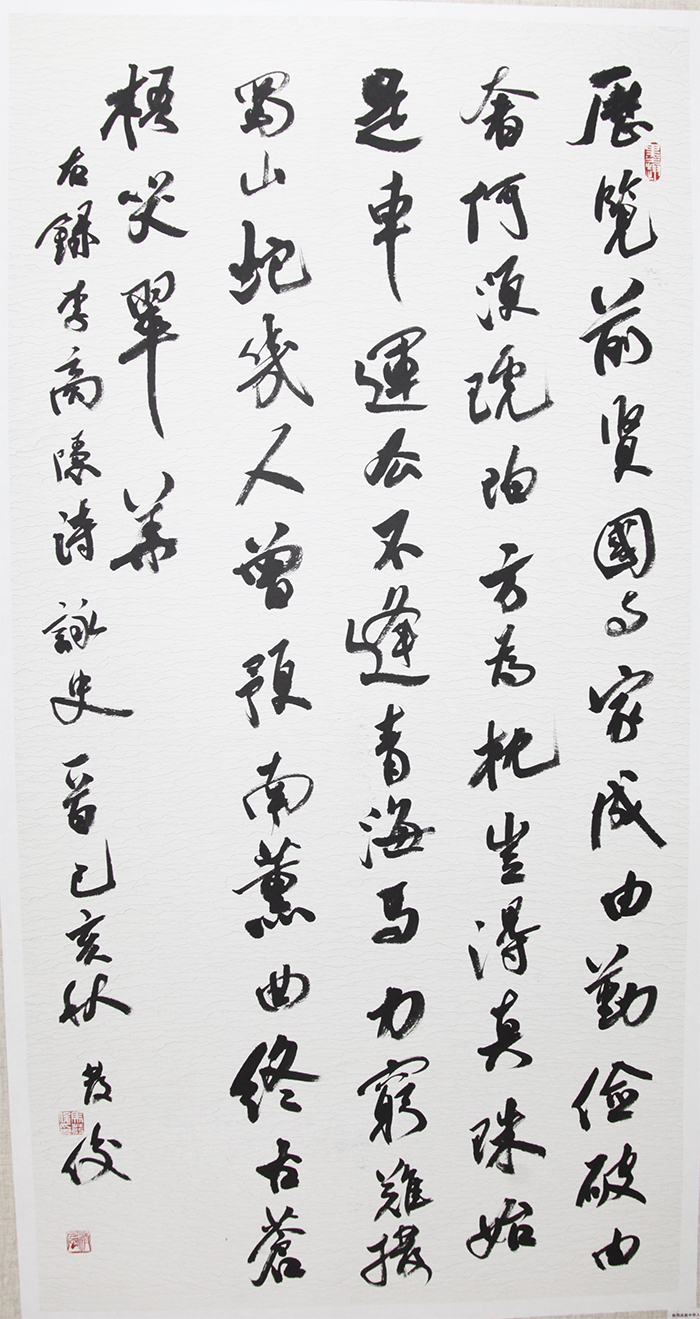 歷覽前賢國与家成由勤儉破由
奢何須琥珀方為枕豈得真珠始
是車運去不逢青海馬力窮難拔
蜀山蛇幾人曾預南薰曲終古蒼
梧哭翠華
右錄李商隱詩詠史一首己亥秋 俊